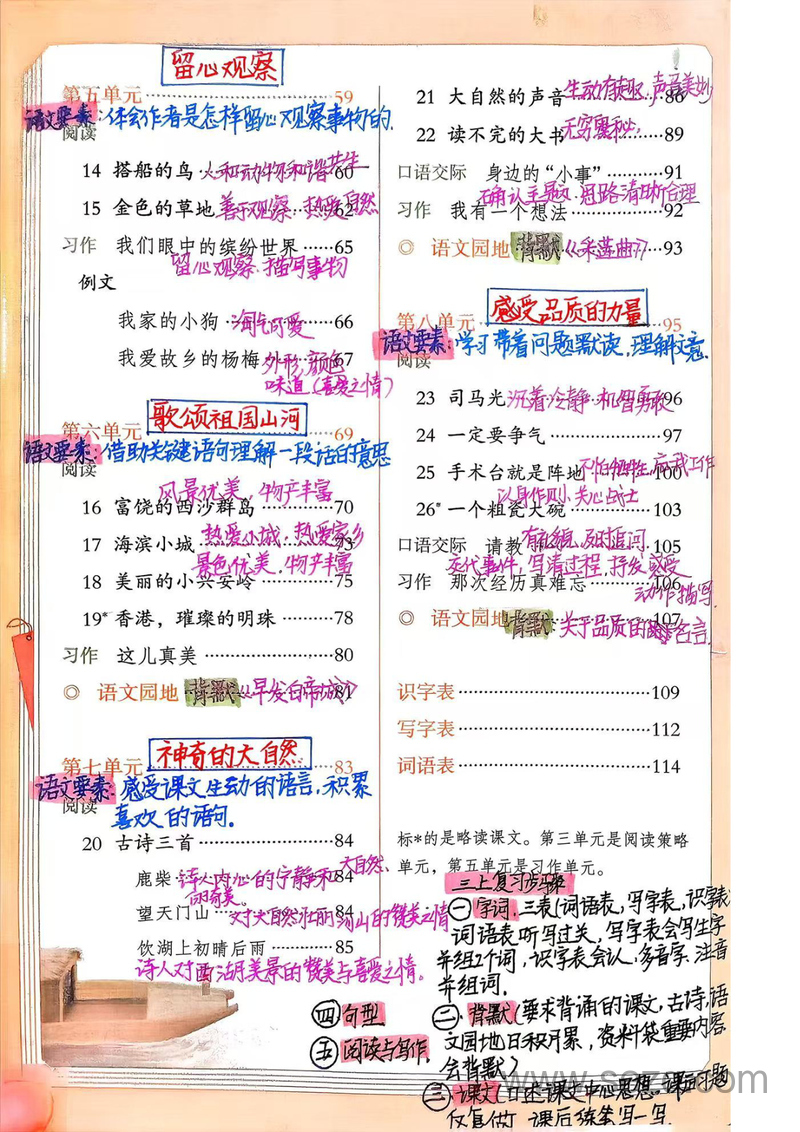 留心观察
第五单元 59
语文要素:体会作者是怎样留心观察事物的.
阅读
14 搭船的鸟 人和动物和谐共生 60
15 金色的草地 善于观察 热爱自然 62
习作 我们眼中的缤纷世界 65
留心观察.描写事物
例文
我家的小狗 淘气可爱 66
我爱故乡的杨梅 外形,颜色 67
味道(喜爱之情)
歌颂祖国山河
第六单元 69
语文要素:借助关键语句理解一段话的意思
阅读
风景优美,物产丰富
16 富饶的西沙群岛 70
17 海滨小城 热爱小城,热爱家乡 73
景色优美,物产丰富
18 美丽的小兴安岭 75
19*香港,璀璨的明珠 78
习作 这儿真美 80
◎ 语文园地 背默《早发白帝城》 81
神奇的大自然
第七单元 83
语文要素:感受课文生动的语言,积累
阅读
喜欢的语句.
20 古诗三首 84
鹿柴 诗人内心的宁静和大自然 84
的奇美。
望天门山 对大自然壮丽河山的赞美之情
饮湖上初晴后雨 85
诗人对西湖美景的赞美与喜爱之情。
21 大自然的声音 生动有趣,声音美妙 86
22 读不完的大书 无穷奥秘. 89
口语交际 身边的“小事” 91
确认主题 思路清晰合理
习作 我有一个想法 92
◎ 语文园地 背默《采莲曲》 93
感受品质的力量
第八单元 95
语文要素:学习带着问题默读,理解文意.
阅读
23 司马光 沉着冷静 机智勇敢 96
24 一定要争气 97
25 手术台就是阵地 不怕牺牲, 工作 100
以身作则,关心战士
26*一个粗瓷大碗 103
口语交际 请教 有礼貌,及时追问. 105
交代事件,写清过程,抒发感受
习作 那次经历真难忘 106
动作描写.
◎ 语文园地 107
背默:关于品质的名言.
识字表 109
写字表 112
词语表 114
标*的是略读课文。第三单元是阅读策略
单元,第五单元是习作单元。
三上复习步骤
㊀字词.三表(词语表,写字表,识字表
词语表听写过关,写字表会写生字
并组2个词,识字表会认.多音字.注音
并组词.
㊁背默(要求背诵的课文,古诗,语
文园地日积月累,资料袋重要内容
会背默)
㊂课文(口述课文中心思想. 课后习题
仅复做 课后练笔写一写.
㊃句型
㊄阅读与写作.